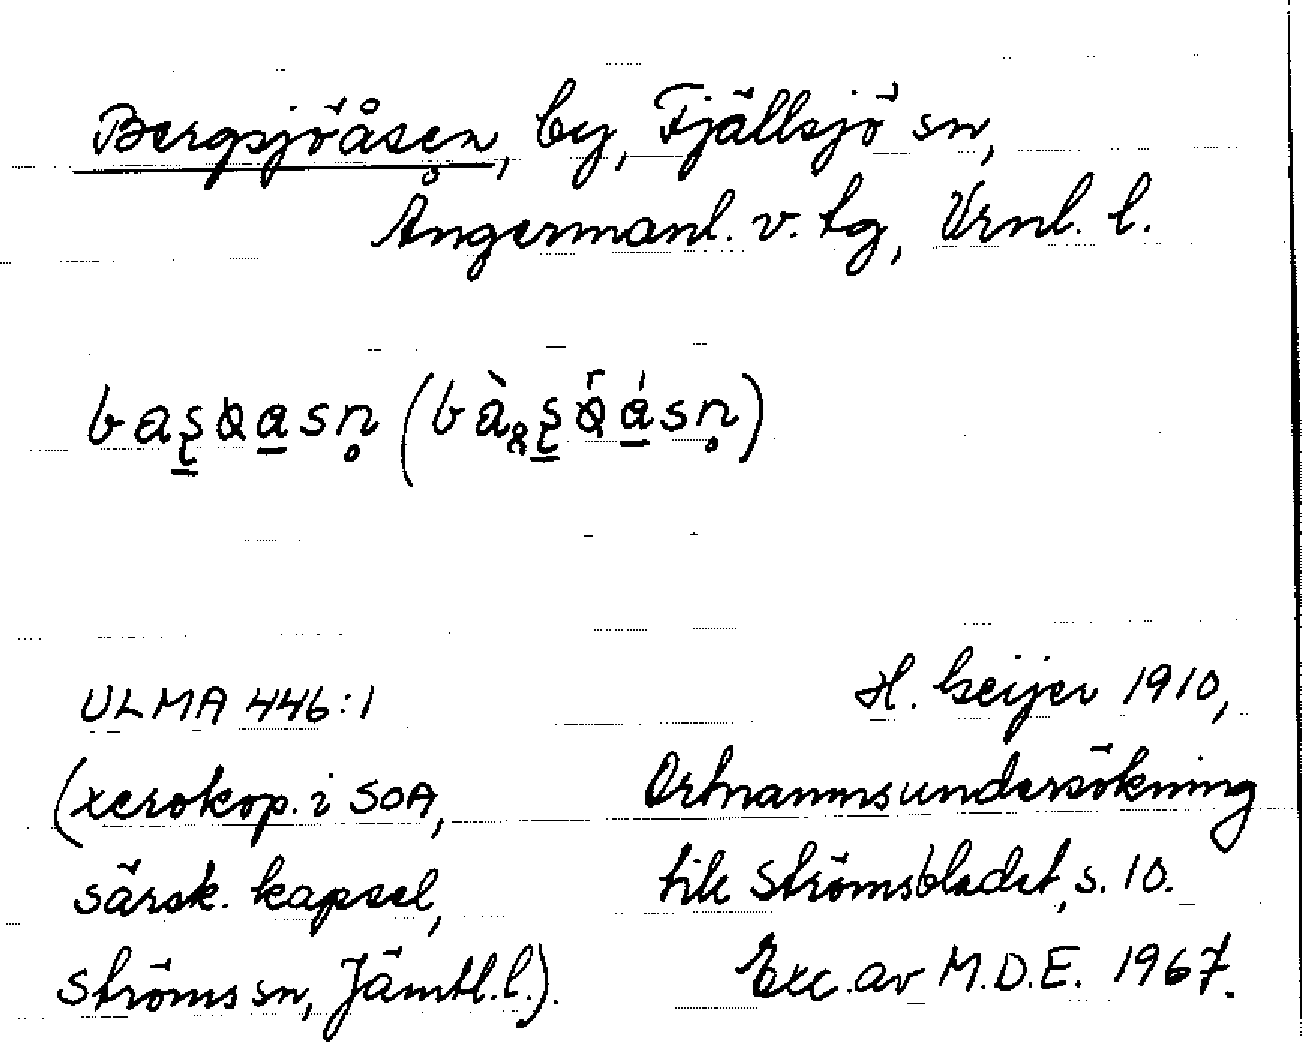 Bergsjöåsen, by, Fjällsjö sn,
Ångermanl. v. tg, Vrnl. l.
ULMA 446:1
(xerokop. i SOA,
särsk. kapsel,
Ströms sn, Jämtl. l.).
H. Geijer 1910,
Ortnamnsundersökning
till Strömsbladet, s. 10.
Exc. av M.D.E. 1967.